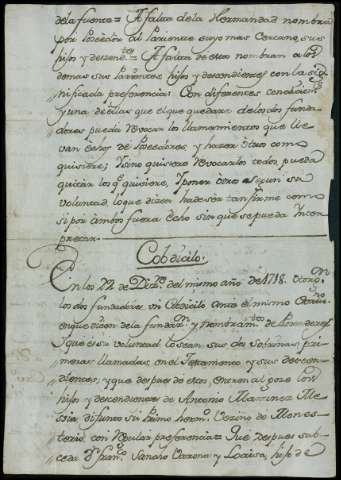 de la fuente = A falta de la Hermandad nombra
por Poseedor al Pariente suyo mas Cercano, sus
hijos y descend.tes = A falta de estos nombran a los
demas sus Parientes hijos y descendientes con la sig
nificada preferencia: Con diferentes condiciones
y una de ellas que el que quedare de los dos funda
dores pueda revocar los llamamientos que lle
van echos de Poseedores, y hazer otros como
quisiere; Y sino quisiere revocarlos todos pueda
quitar los q.e quisiere, y poner otros segun su
voluntad, lo que dizen ha de ser tan firme como
si por ambos fuera echo sin que se pueda Inter
pretar.
Cobdicilo.
En los 22 de Diz.re del mismo año de 1718. otorg.n
los dos fundadores un Cobdicilo ante el mismo
en que dizen de la fundaz.n y nombram.tos de
que es su voluntad lo sean sus dos sobrinas, pri
meras llamadas, en el Testamento y sus descen
dientes, y que despues de estos entren al goze los
hijos y descendientes de Antonio Martinez Me
sia, difunto su Primo herm.o Vezino de Mones
terio, con regular preferencia = Que despues sub
ceda D.n Fran.co Sancho y Loaisa, hijo de